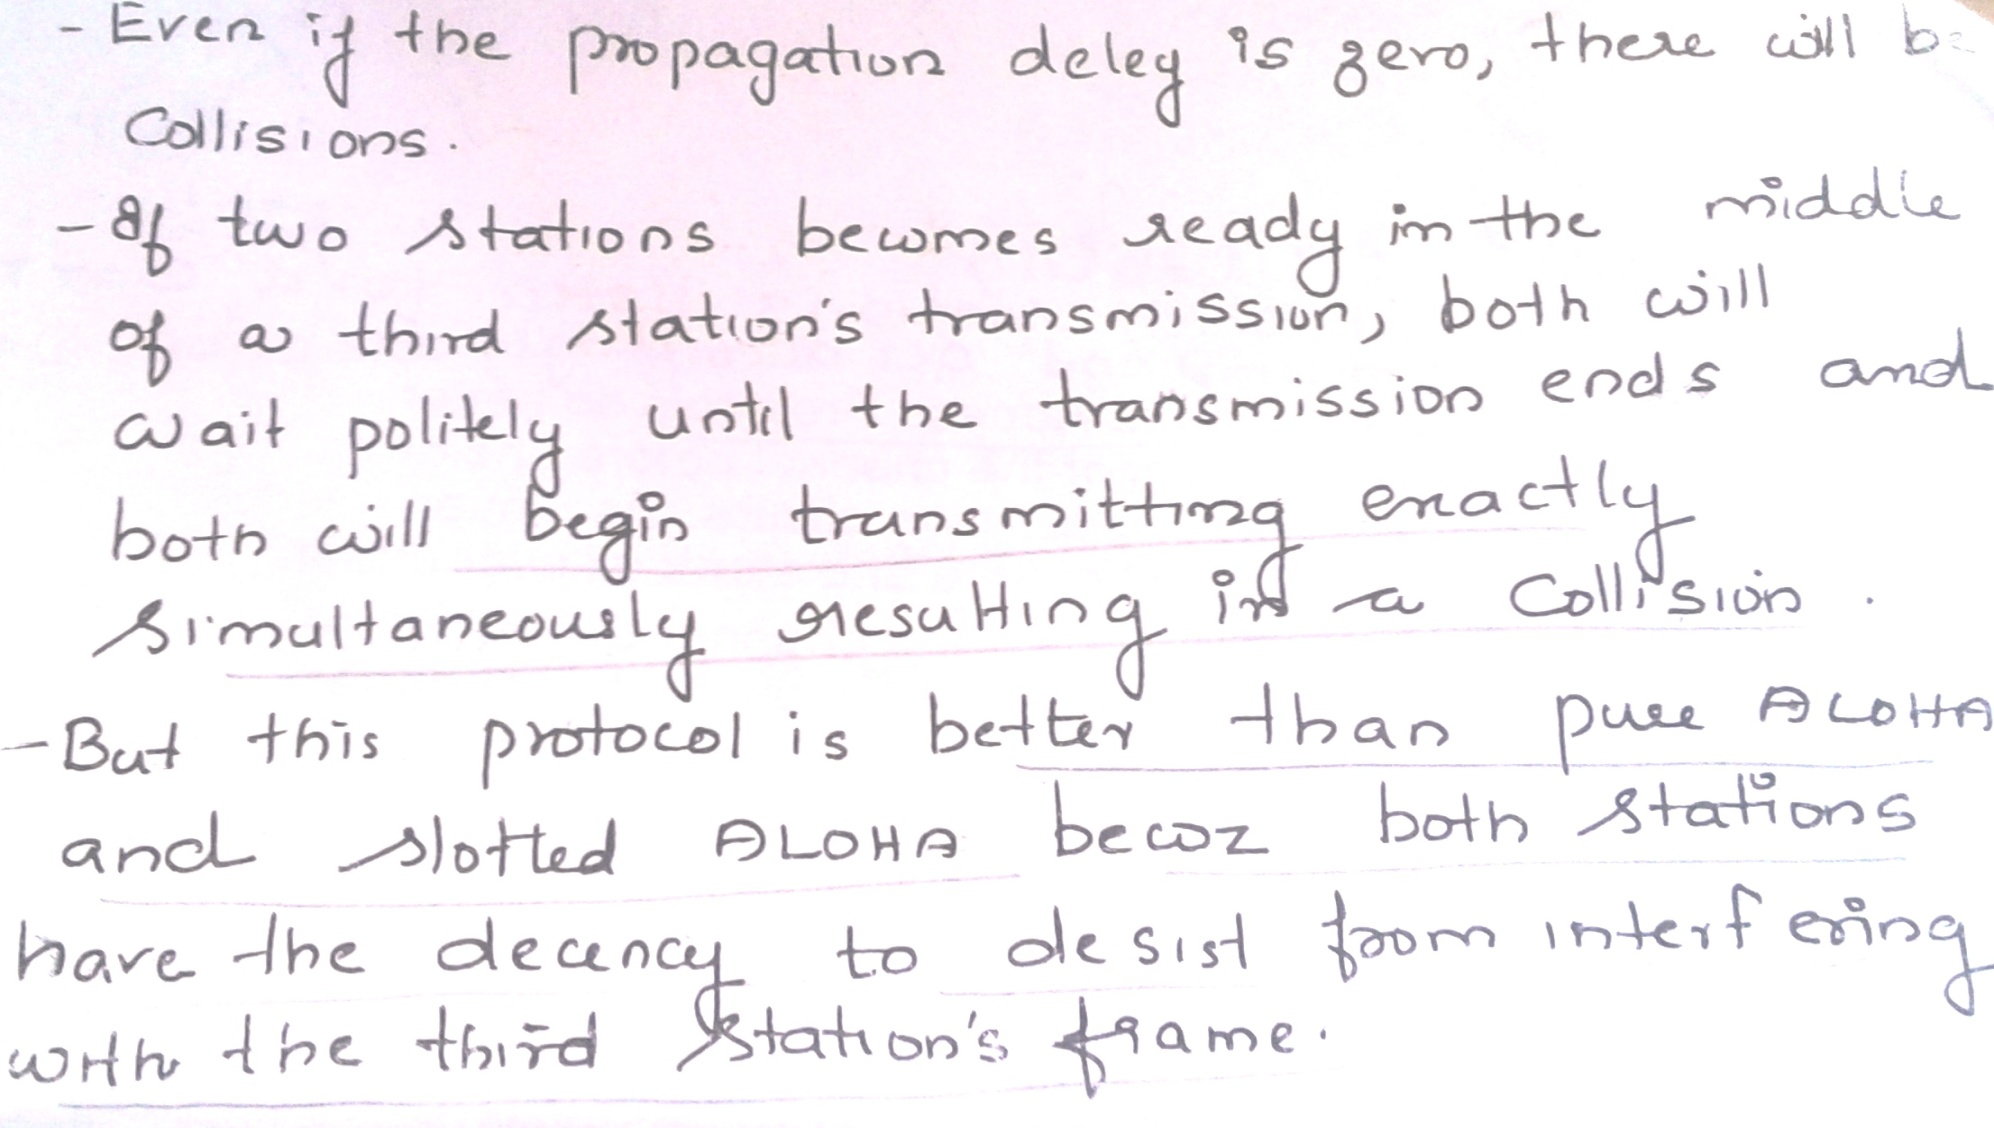 - Even if the propagation deley is zero, there will be
Collisions.
- If two stations becomes ready in the middle
of a third station's transmission, both will
wait politely until the transmission ends and
both will begin transmitting exactly
simultaneously resulting in a Collision.
- But this protocol is better than pure ALOHA
and slotted ALOHA becoz both stations
have the decency to desist from interfering
with the third station's frame.